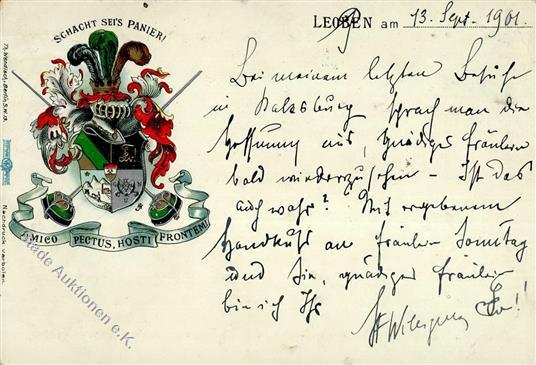 SCHACHT SEI'S PANIER!
LEOBEN am 13. Sept. 1901.
Bei meinem letzten Besuche
in Kalksburg sprach man die
Hoffnung aus, gnädiges Fräulein
bald wiederzusehen – Ist das
auch wahr? Mit ergebenem
Handkuß an Fräulein Sonntag
und Sie, gnädiges Fräulein
bin ich Ihr
AMICO PECTUS, HOSTI FRONTEM!
Nachdruck verboten.
Auktionen e.K.